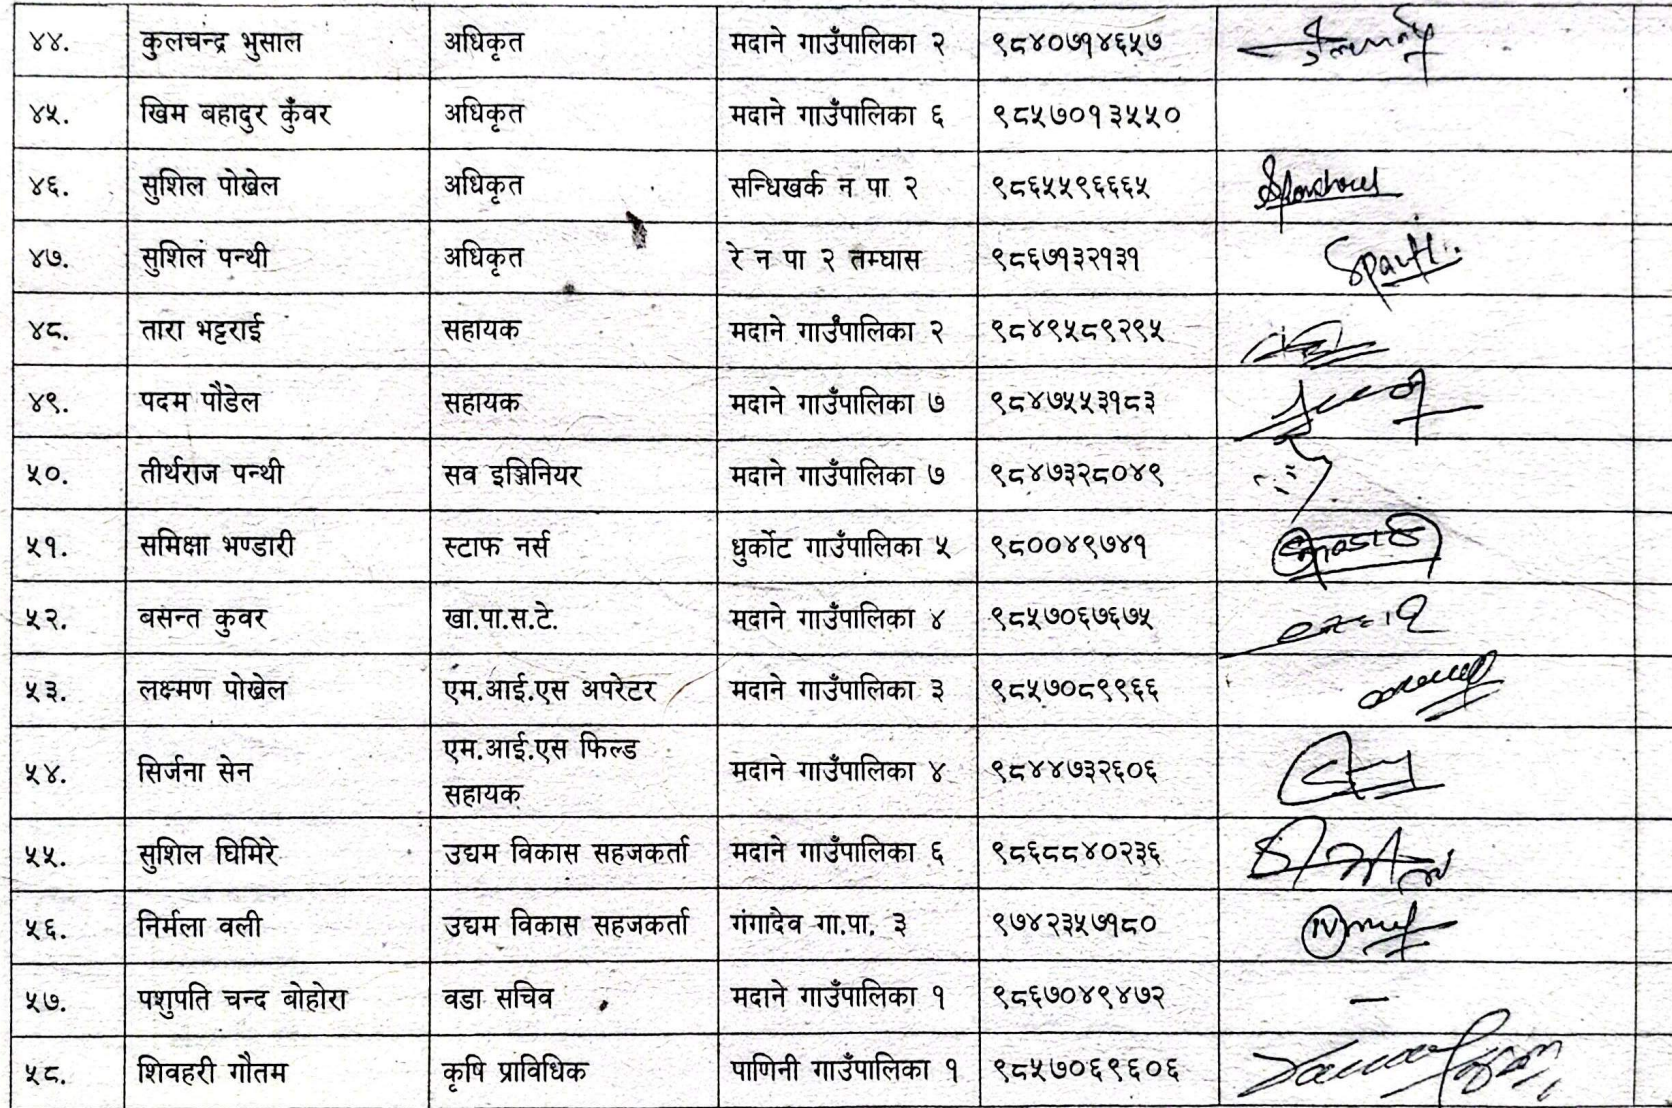 ४४. कुलचन्द्र भुसाल अधिकृत मदाने गाउँपालिका २ ९८४०७१४६५७
४५. खिम बहादुर कुँवर अधिकृत मदाने गाउँपालिका ६ ९८५७०१३५५०
४६. सुशिल पोख्रेल अधिकृत सन्धिखर्क न पा २ ९८६५५९६६६५
४७. सुशिल पन्थी अधिकृत रे न पा २ तम्घास ९८६७१३२१३१
४८. तारा भट्टराई सहायक मदाने गाउँपालिका २ ९८४९५८९२९५
४९. पदम पौडेल सहायक मदाने गाउँपालिका ७ ९८४७५५३१८३
५०. तीर्थराज पन्थी सव इञ्जिनियर मदाने गाउँपालिका ७ ९८४७३२८०४९
५१. समिक्षा भण्डारी स्टाफ नर्स धुर्कोट गाउँपालिका ५ ९८००४९७४१
५२. बसन्त कुवर खा.पा.स.टे. मदाने गाउँपालिका ४ ९८५७०६७६७५
५३. लक्ष्मण पोख्रेल एम.आई.एस अपरेटर मदाने गाउँपालिका ३ ९८५७०८९९६६
५४. सिर्जना सेन एम.आई.एस फिल्ड सहायक मदाने गाउँपालिका ४ ९८४४७३२६०६
५५. सुशिल घिमिरे उद्यम विकास सहजकर्ता मदाने गाउँपालिका ६ ९८६८८४०२३६
५६. निर्मला वली उद्यम विकास सहजकर्ता गंगादेव गा.पा. ३ ९७४२३५७१८०
५७. पशुपति चन्द बोहोरा वडा सचिव मदाने गाउँपालिका १ ९८६७०४९४७२ –
५८. शिवहरी गौतम कृषि प्राविधिक पाणिनी गाउँपालिका १ ९८५७०६९६०६